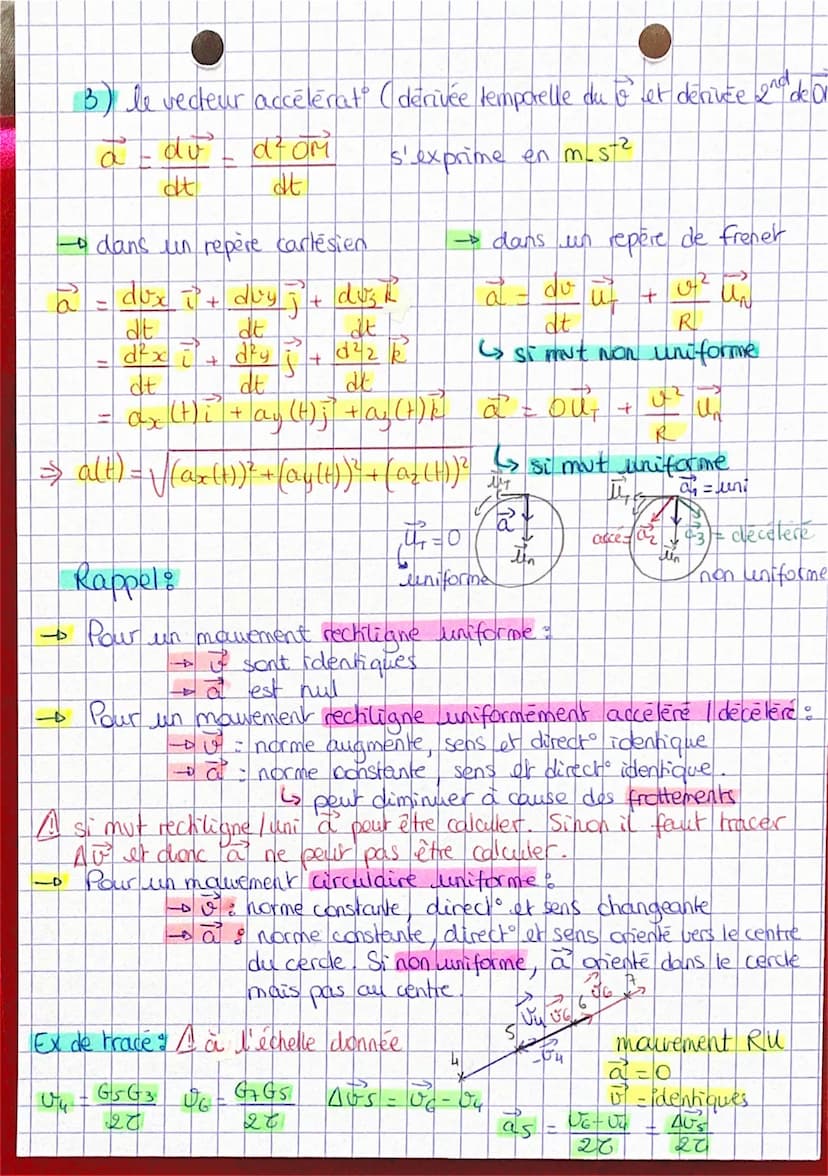 3) le vecteur accélérat° (dérivée temporelle du v⃗ et dérivée 2nd de
a⃗ = dv⃗/dt = d²OM⃗/dt s'exprime en m.s⁻²
→ dans un repère cartésien
a⃗ = dvx/dt i⃗ + dvy/dt j⃗ + dvz/dt k⃗
= d²x/dt i⃗ + d²y/dt j⃗ + d²z/dt k⃗
= ax(t)i⃗ + ay(t)j⃗ + az(t)k⃗
⇒ a(t) = √(ax(t))²+(ay(t))²+(az(t))²
→ dans un repère de frenet
a⃗ = dv/dt u⃗T + v²/R u⃗n
↳ si mvt non uniforme
a⃗ = 0u⃗T + v²/R u⃗n
↳ si mvt uniforme
u⃗T
a⃗
u⃗n
u⃗T = 0
uniforme
u⃗T a⃗1 = uni
accé = a⃗2 a⃗3 = décéléré
u⃗n
non uniforme
Rappel :
→ Pour un mouvement rectiligne uniforme :
→ v⃗ sont identiques
→ a⃗ est nul
→ Pour un mouvement rectiligne uniformément accéléré / décéléré :
→ v⃗ : norme augmente, sens et direct° identique
→ a⃗ : norme constante, sens et direct° identique.
↳ peut diminuer à cause des frottements
⚠ si mvt rectiligne / uni a⃗ peut être calculer. Sinon il faut tracer
Δv⃗ et donc a⃗ ne peut pas être calculer.
→ Pour un mouvement circulaire uniforme :
→ v⃗ : norme constante, direct° et sens changeante
→ a⃗ : norme constante, direct° et sens orienté vers le centre
du cercle. Si non uniforme, a⃗ orienté dans le cercle
mais pas au centre.
Ex de tracé : ⚠ à l'échelle donnée
4 5 v⃗4 v⃗6 6 v⃗6 7
-v⃗4
mouvement RU
a⃗ = 0
v⃗ = identiques
v4 = G5G3/2τ v⃗6 = G7G5/2τ Δv⃗5 = v⃗6 - v⃗4
a⃗5 = v⃗6-v⃗4/2τ = Δv⃗5/2τ